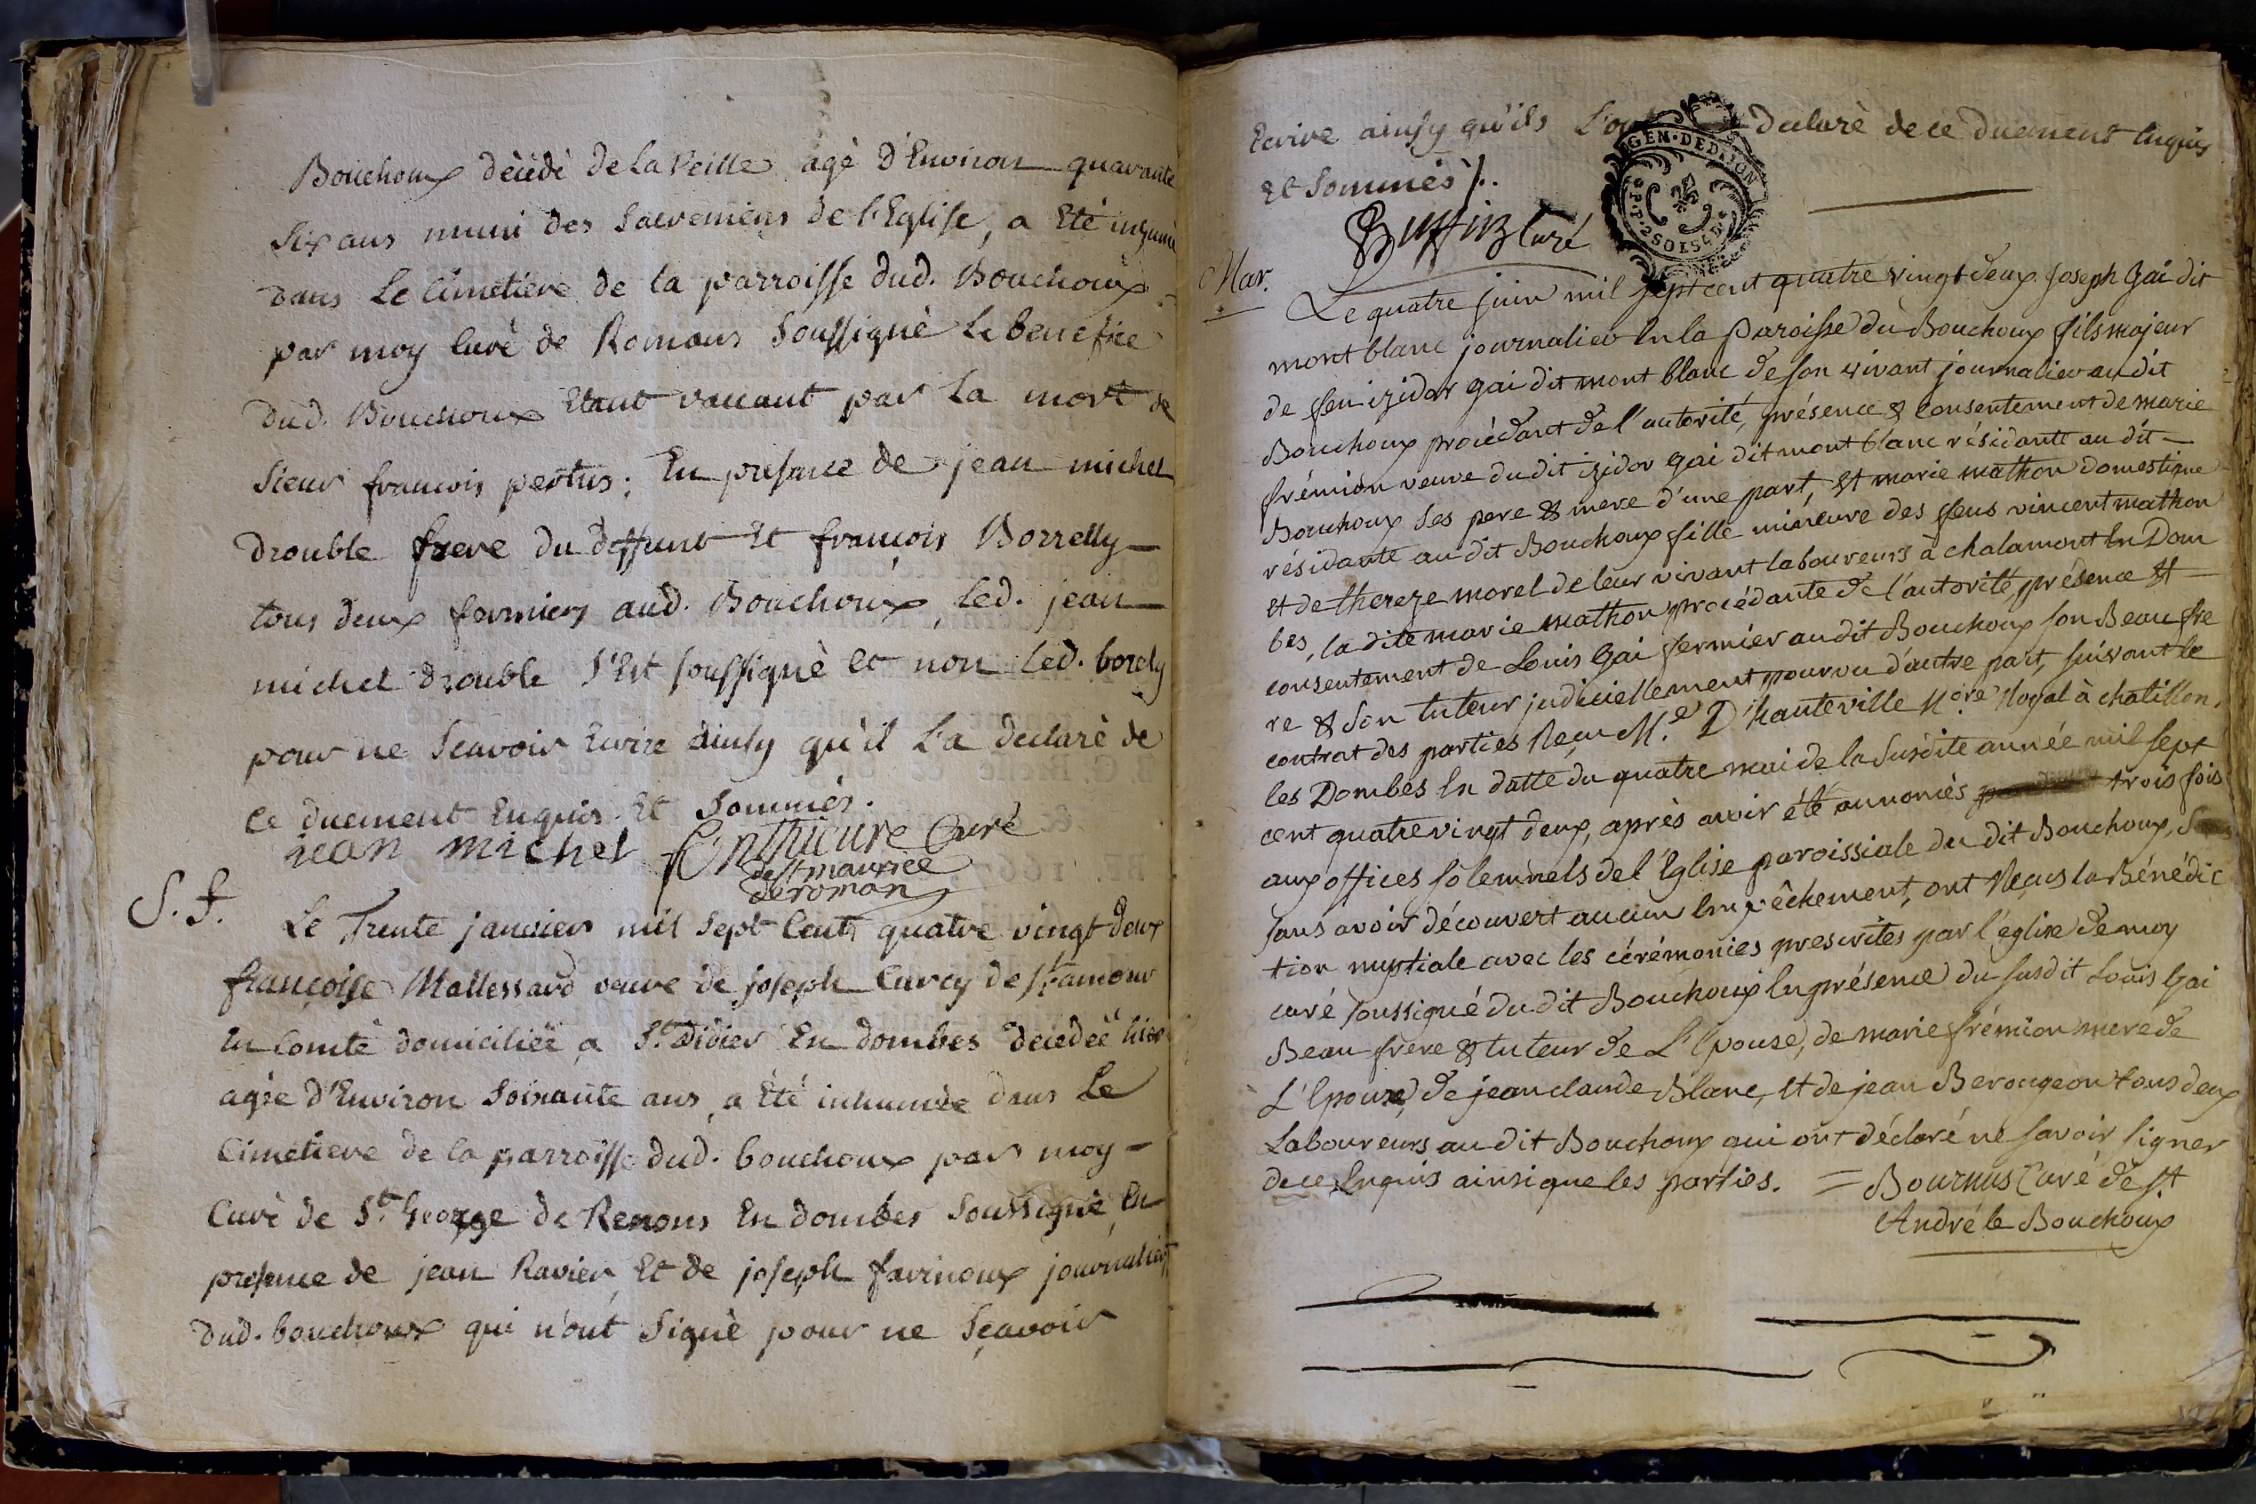 Bouchoux dècèdè de La veille agè d'Environ quarante
Six ans muni des Sacremens de l'Eglise, a Etè inhumè
dans Le Cimetiere de la parroisse dud. Bouchoux
par moy Curè de Romans Soussignè Le benefice
dud. Bouchoux Etant vaccant par La mort de
Sieur francois pertus; En presence de jean michel
drouble frere du deffunt Et françois Borrelly
tous deux fermiers aud. Bouchoux, led. jean
michel drouble S'Est soussignè Et non led. borely
pour ne Sçavoir Ecrire ainsy qu'il L'a declarè de
ce duement Enquis Et Sommès.
jean michel Curé
de st maurice
de roman
S. f. Le Trente janvier mil Sept Cent quatre vingt deux
françoise Mallessard veuve de joseph Curcy de st amour
En Comtè domicilièe a St. Didier En dombes dècèdèe hier
agèe d'Environ Soixante ans, a Etè inhumèe dans Le
Cimetiere de la parroisse dud. bouchoux par moy
Curè de St. George de Renons En dombes Soussignè En
presence de jean Ravier Et de joseph farinoux journaliers
dud. bouchoux qui n'ont Signè pour ne Sçavoir
Ecrire ainsy qu'ils L'ont declarè de ce duement Enquis
Et Sommès /.
Buffin Curé
GEN. DE DIJON
2 SOLS 4 D.
Mar. Le quatre juin mil sept cent quatre vingt deux joseph Gai dit
mont blanc journalier En la Paroisse du Bouchoux fils majeur
de feu izidor gai dit mont blanc de son vivant journalier au dit
Bouchoux procédant de l'autorité, présence & consentement de marie
frémion veuve du dit izidor gai dit mont blanc résidante au dit
Bouchoux ses pere & mere d'une part, Et marie mathon domestique
résidante au dit Bouchoux fille mineure des feus vincent mathon
Et de thereze morel de leur vivant laboureurs à chalamont En Dom
bes, la dite marie mathon procédante de l'autorité, présence Et
consentement de Louis Gai fermier au dit Bouchoux son Beau fre
re & son tuteur judiciellement pourvu d'autre part, suivant le
contrat des parties Reçu Me. D'hauteville Nore. Royal à chatillon
les Dombes En datte du quatre mai de la Susdite année mil sept
cent quatre vingt deux, après avoir été annoncés trois fois
aux offices solemnels de l'Eglise paroissiale du dit Bouchoux,
sans avoir découvert aucun Empêchement, ont Reçus la Bénédic
tion nuptiale avec les cérémonies prescrites par l'église de moy
curé soussigné du dit Bouchoux En présence du susdit Louis Gai
Beau-frere & tuteur de L'Epouse, de marie frémion mere de
L'Epoux, de jean claude Blanc, Et de jean Berongeon tous deux
Laboureurs au dit Bouchoux qui ont déclaré ne savoir signer
de ce Enquis ainsi que les parties. = Bournus Curé de St
André le Bouchoux